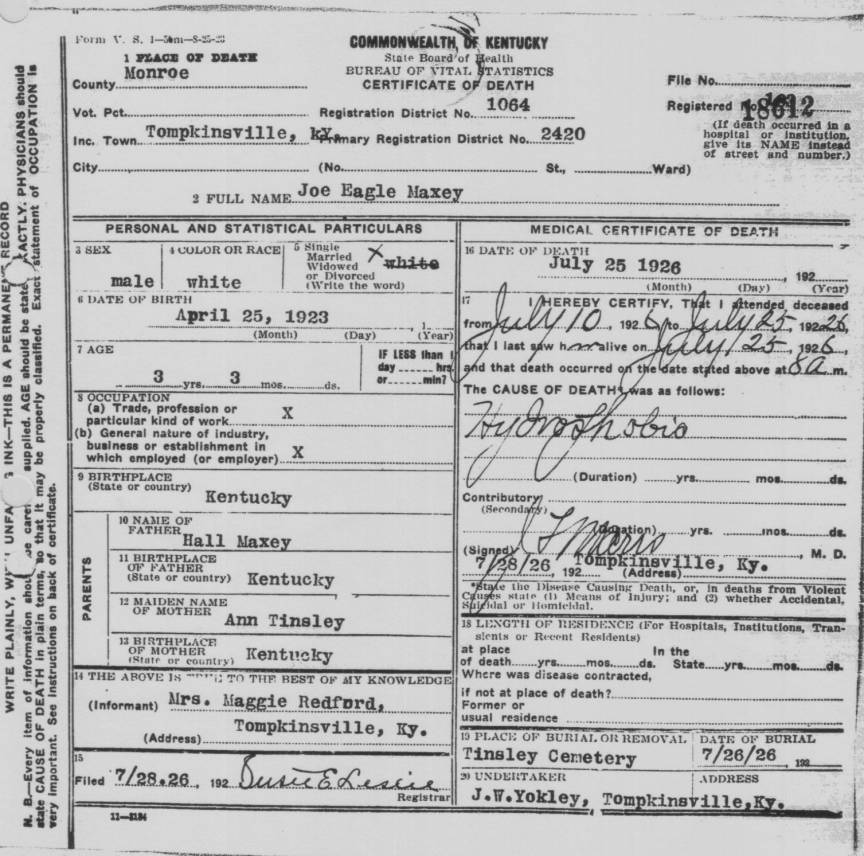 Form V. S. 1—50m—8-25-23
COMMONWEALTH OF KENTUCKY
State Board of Health
BUREAU OF VITAL STATISTICS
CERTIFICATE OF DEATH
1 PLACE OF DEATH
County Monroe
File No.
Vot. Pct.
Registration District No. 1064
Registered No. 18612
Inc. Town Tompkinsville, ky.
Primary Registration District No. 2420
(If death occurred in a
hospital or institution,
give its NAME instead
of street and number.)
City (No. St., Ward)
2 FULL NAME Joe Eagle Maxey
PERSONAL AND STATISTICAL PARTICULARS
3 SEX
male
4 COLOR OR RACE
white
5 Single
Married
Widowed
or Divorced
(Write the word)
X white
6 DATE OF BIRTH
April 25, 1923
(Month) (Day) (Year)
7 AGE
3 yrs. 3 mos. ds.
IF LESS than 1
day hrs.
or min?
8 OCCUPATION
(a) Trade, profession or
particular kind of work X
(b) General nature of industry,
business or establishment in
which employed (or employer) X
9 BIRTHPLACE
(State or country)
Kentucky
PARENTS
10 NAME OF
FATHER
Hall Maxey
11 BIRTHPLACE
OF FATHER
(State or country) Kentucky
12 MAIDEN NAME
OF MOTHER
Ann Tinsley
13 BIRTHPLACE
OF MOTHER
(State or country) Kentucky
14 THE ABOVE IS TRUE TO THE BEST OF MY KNOWLEDGE
(Informant) Mrs. Maggie Redford,
(Address) Tompkinsville, Ky.
15
Filed 7/28.26 , 192 Susie E Leslie
Registrar
11—3184
MEDICAL CERTIFICATE OF DEATH
16 DATE OF DEATH
July 25 1926 , 192
(Month) (Day) (Year)
17 I HEREBY CERTIFY, That I attended, deceased
from July 10, 1926, to July 25, 1926,
that I last saw h m alive on July 25, 1926,
and that death occurred on the date stated above at 8 a m.
The CAUSE OF DEATH* was as follows:
Hydrophobia
(Duration) yrs. mos. ds.
Contributory
(Secondary)
(Duration) yrs. mos. ds.
(Signed) , M. D.
7/28/26 , 192 (Address) Tompkinsville, Ky.
*State the Disease Causing Death, or, in deaths from Violent
Causes state (1) Means of Injury; and (2) whether Accidental,
Suicidal or Homicidal.
18 LENGTH OF RESIDENCE (For Hospitals, Institutions, Tran-
sients or Recent Residents)
at place In the
of death yrs. mos. ds. State yrs. mos. ds.
Where was disease contracted,
if not at place of death?
Former or
usual residence
19 PLACE OF BURIAL OR REMOVAL
Tinsley Cemetery
DATE OF BURIAL
7/26/26 , 192
20 UNDERTAKER
J.W.Yokley,
ADDRESS
Tompkinsville,Ky.
WRITE PLAINLY, WITH UNFADING INK—THIS IS A PERMANENT RECORD
N. B.—Every item of information should be carefully supplied. AGE should be stated EXACTLY. PHYSICIANS should
state CAUSE OF DEATH in plain terms, so that it may be properly classified. Exact statement of OCCUPATION is
very important. See instructions on back of certificate.